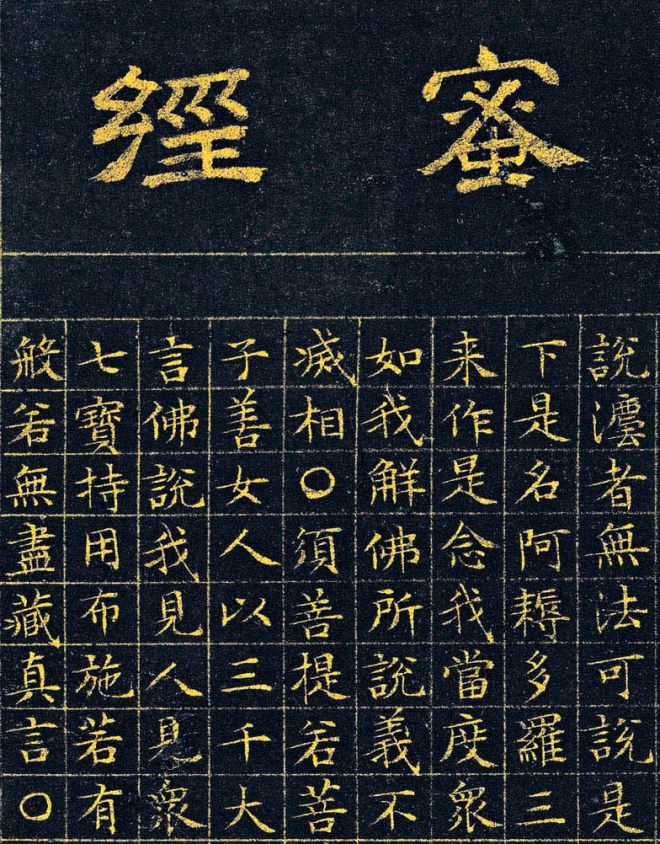 蜜經
說灋者無法可說是
下是名阿耨多羅三
来作是念我當度衆
如我解佛所說義不
滅相〇須菩提若菩
子善女人以三千大
言佛說我見人見衆
七寶持用布施若有
般若無盡藏真言〇